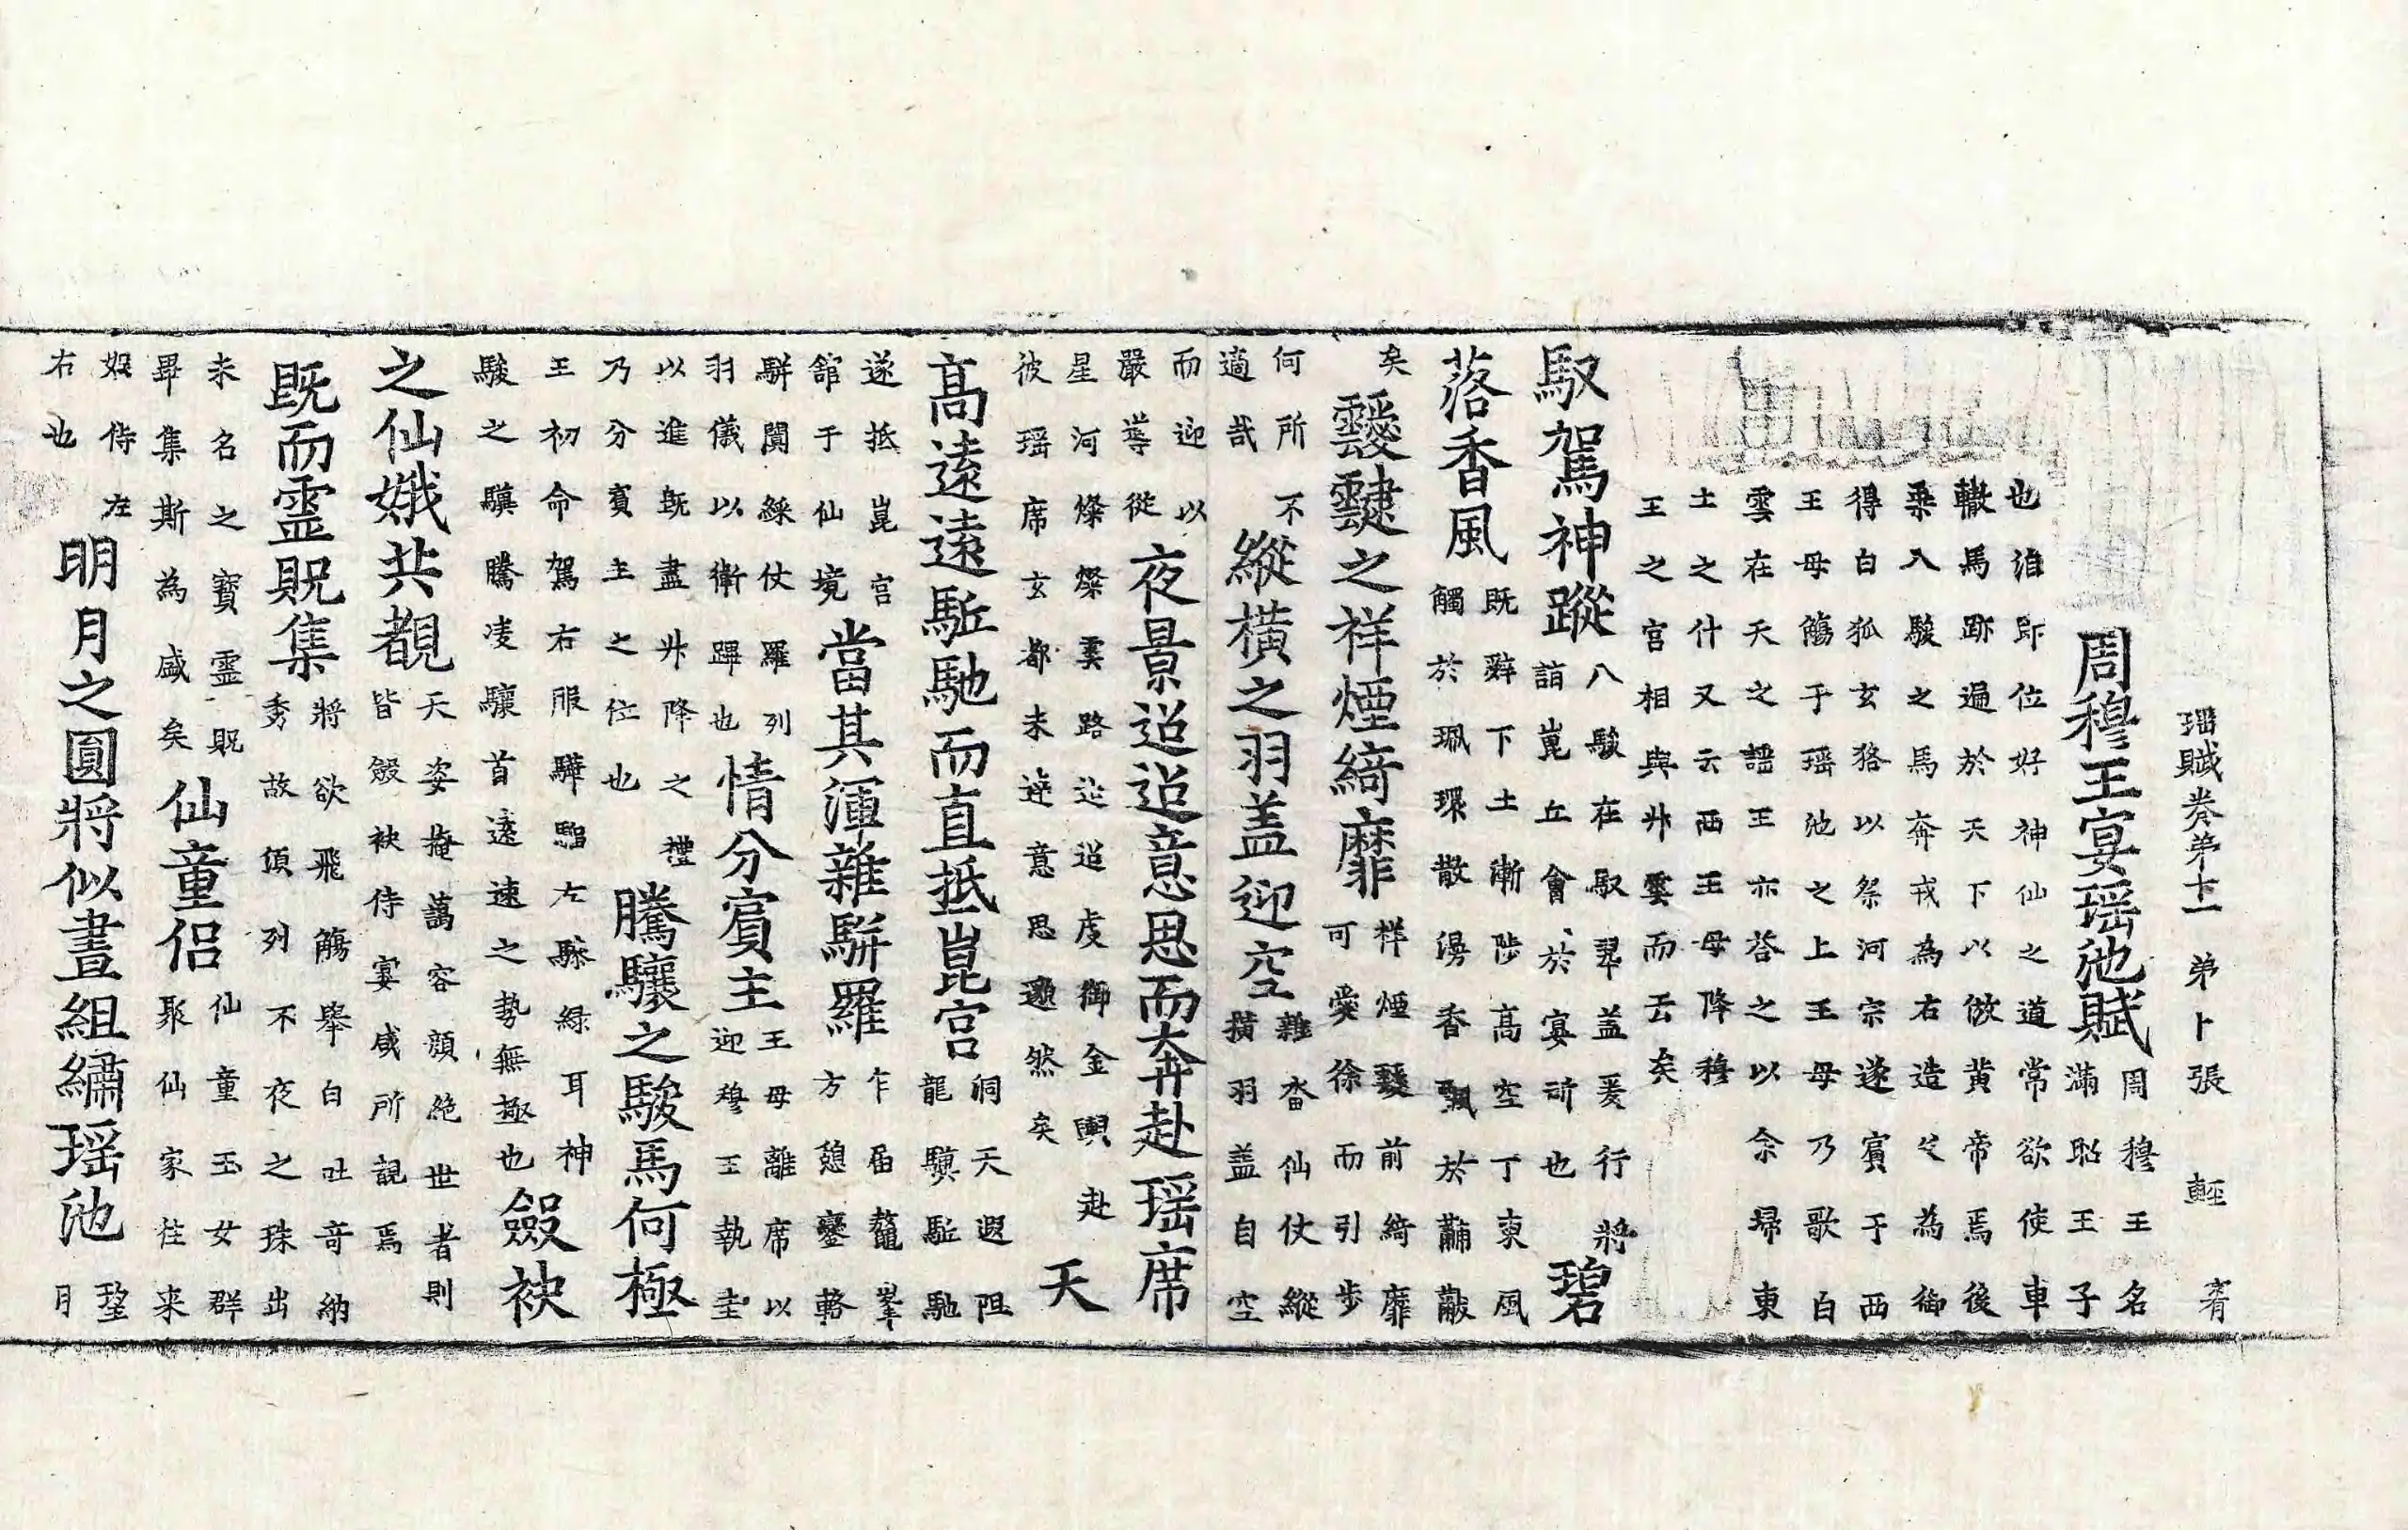 瑶賦卷苐十二 苐卜張 輕
周穆王宴瑶池賦 周穆王名 滿昭王子
也洎即位好神仙之道常欲使車
轍馬跡遍於天下以倣黃帝焉後
乗八駿之馬奔戎為右造父為御
得白狐玄狢以祭河宗遂賓于西
王母觴于瑶池之上王母乃歌白
雲在天之謡王亦荅之以余帰東
土之什又云西王母降穆
王之宮相與升雲而云矣
馭駕神蹤 八駿在馭翠盖爰行將 詣崑丘會於宴所也 碧
落香風 既辤下土漸陟高空丁東風 觸於珮環散漫香飄於黼黻
矣 靉靆之祥煙綺靡 祥煙靉前綺靡 可愛徐而引步
何所不 適哉 縱橫之羽盖迎空 雜沓仙仗縱 橫羽盖自空
而迎以 嚴導從 夜景迢迢意思而奔赴瑶席
星河燦燦雲路迢迢虔御金輿赴 彼瑶席玄都未逹意思邈然矣 天
高遠遠駈馳而直抵崑宮 洞天遐阻 龍驥駈馳
遂抵崑宮 舘于仙境 當其渾雜駢羅 乍届鼇峯 方憩鑾輅
駢闐綵仗羅列 羽儀以衛蹕也 情分賓主 王母離席以 迎穆王執圭
以進旣盡升降之禮 乃分賓主之位也 騰驤之駿馬何極
王初命駕右服驊騮左驂緑耳神 駿之驥騰凌驤首遠速之勢無極也 斂袂
之仙娥共覩 天姿掩藹容顔絶世者則 皆斂袂侍宴咸所覩焉
既而霊貺集 將欲飛觴舉白吐竒納 秀故須列不夜之珠出
未名之寳霊貺 畢集斯為咸矣 仙童侣 仙童玉女群 聚仙家往来
娯侍左 右也 明月之圓將似晝組繡瑶池 瑩 月